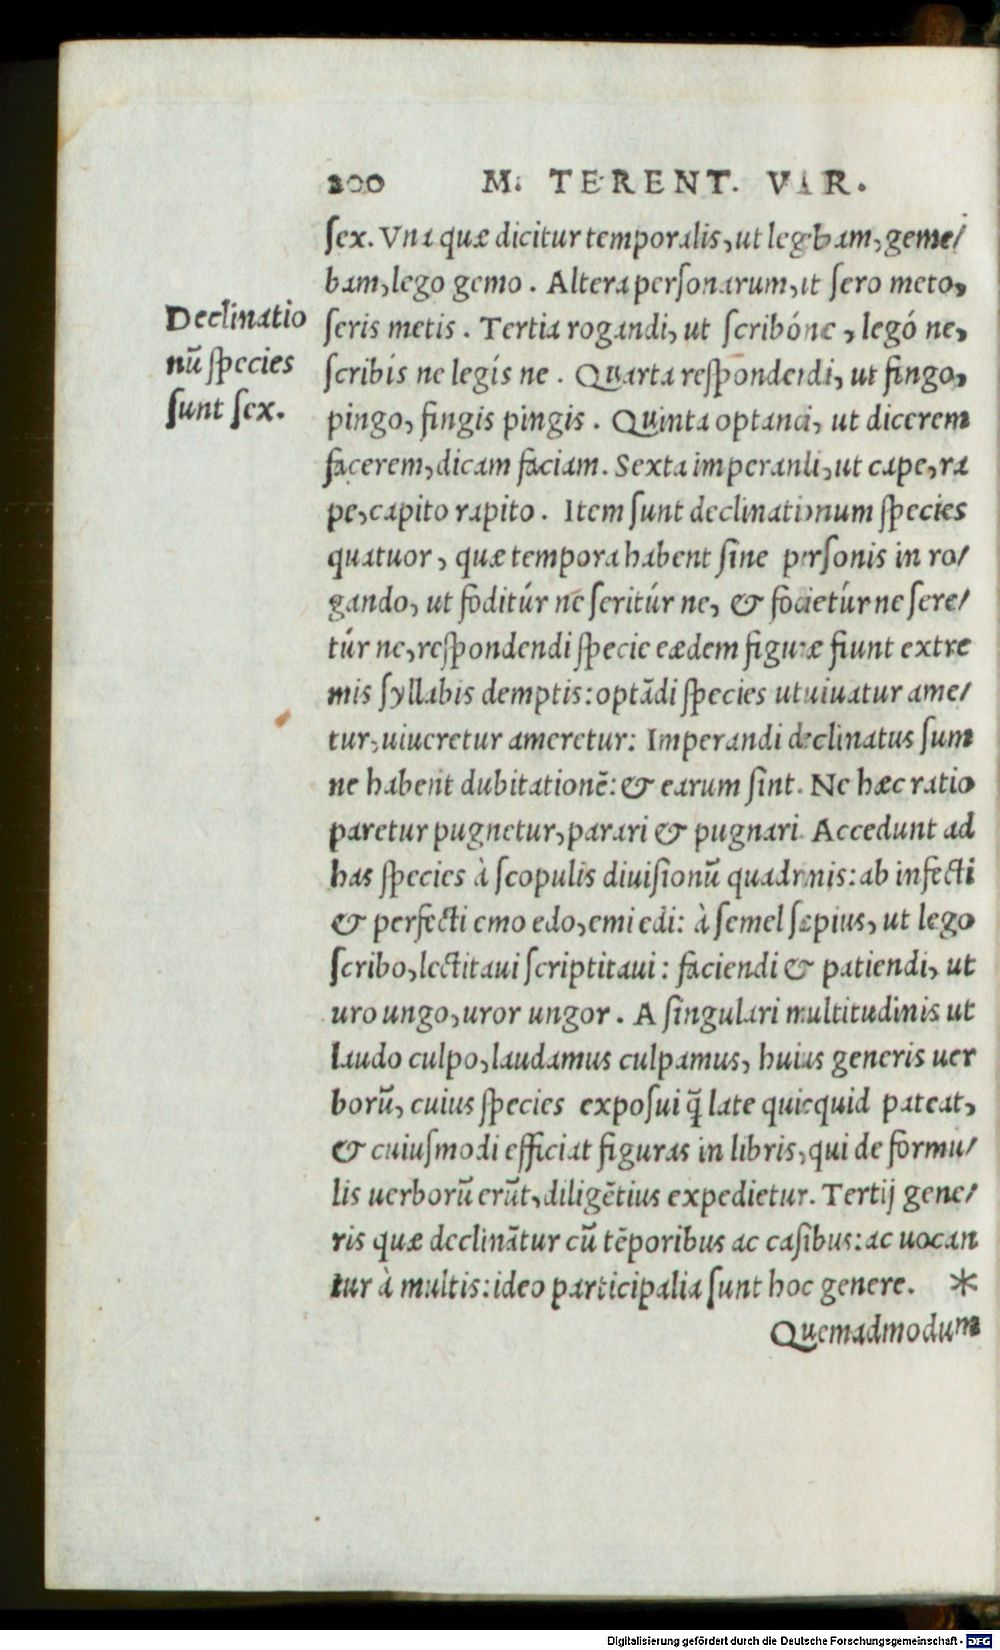 200 M. TERENT. VAR.
ſex. Vna quæ dicitur temporalis, ut legebam, geme/
bam, lego gemo. Altera perſonarum, ut ſero meto,
Declinatio
nū ſpecies
ſunt ſex.
ſeris metis. Tertia rogandi, ut ſcribóne, legó ne,
ſcribís ne legís ne. Quarta reſpondendi, ut fingo,
pingo, fingis pingis. Quinta optandi, ut dicerem
facerem, dicam faciam. Sexta imperandi, ut cape, ra
pe, capito rapito. Item ſunt declinationum ſpecies
quatuor, quæ tempora habent ſine perſonis in ro/
gando, ut foditúr ne ſeritúr ne, & fodietúr ne ſere/
túr ne, reſpondendi ſpecie eædem figuræ fiunt extre
mis ſyllabis demptis: optādi ſpecies ut uiuatur ame/
tur, uiueretur ameretur: Imperandi declinatus ſum
ne habent dubitationē: & earum ſint. Ne hæc ratio
paretur pugnetur, parari & pugnari. Accedunt ad
has ſpecies à ſcopulis diuiſionū quadrinis: ab infecti
& perfecti emo edo, emi edi: à ſemel ſæpius, ut lego
ſcribo, lectitaui ſcriptitaui: faciendi & patiendi, ut
uro ungo, uror ungor. A ſingulari multitudinis ut
laudo culpo, laudamus culpamus, huius generis uer
borū, cuius ſpecies expoſui q̄ late quicquid pateat,
& cuiuſmodi efficiat figuras in libris, qui de formu/
lis uerborū erūt, diligētius expedietur. Tertij gene/
ris quæ declinātur cū tēporibus ac caſibus: ac uocan
tur à multis: ideo participalia ſunt hoc genere. *
Quemadmodum
Digitalisierung gefördert durch die Deutsche Forschungsgemeinschaft - DFG